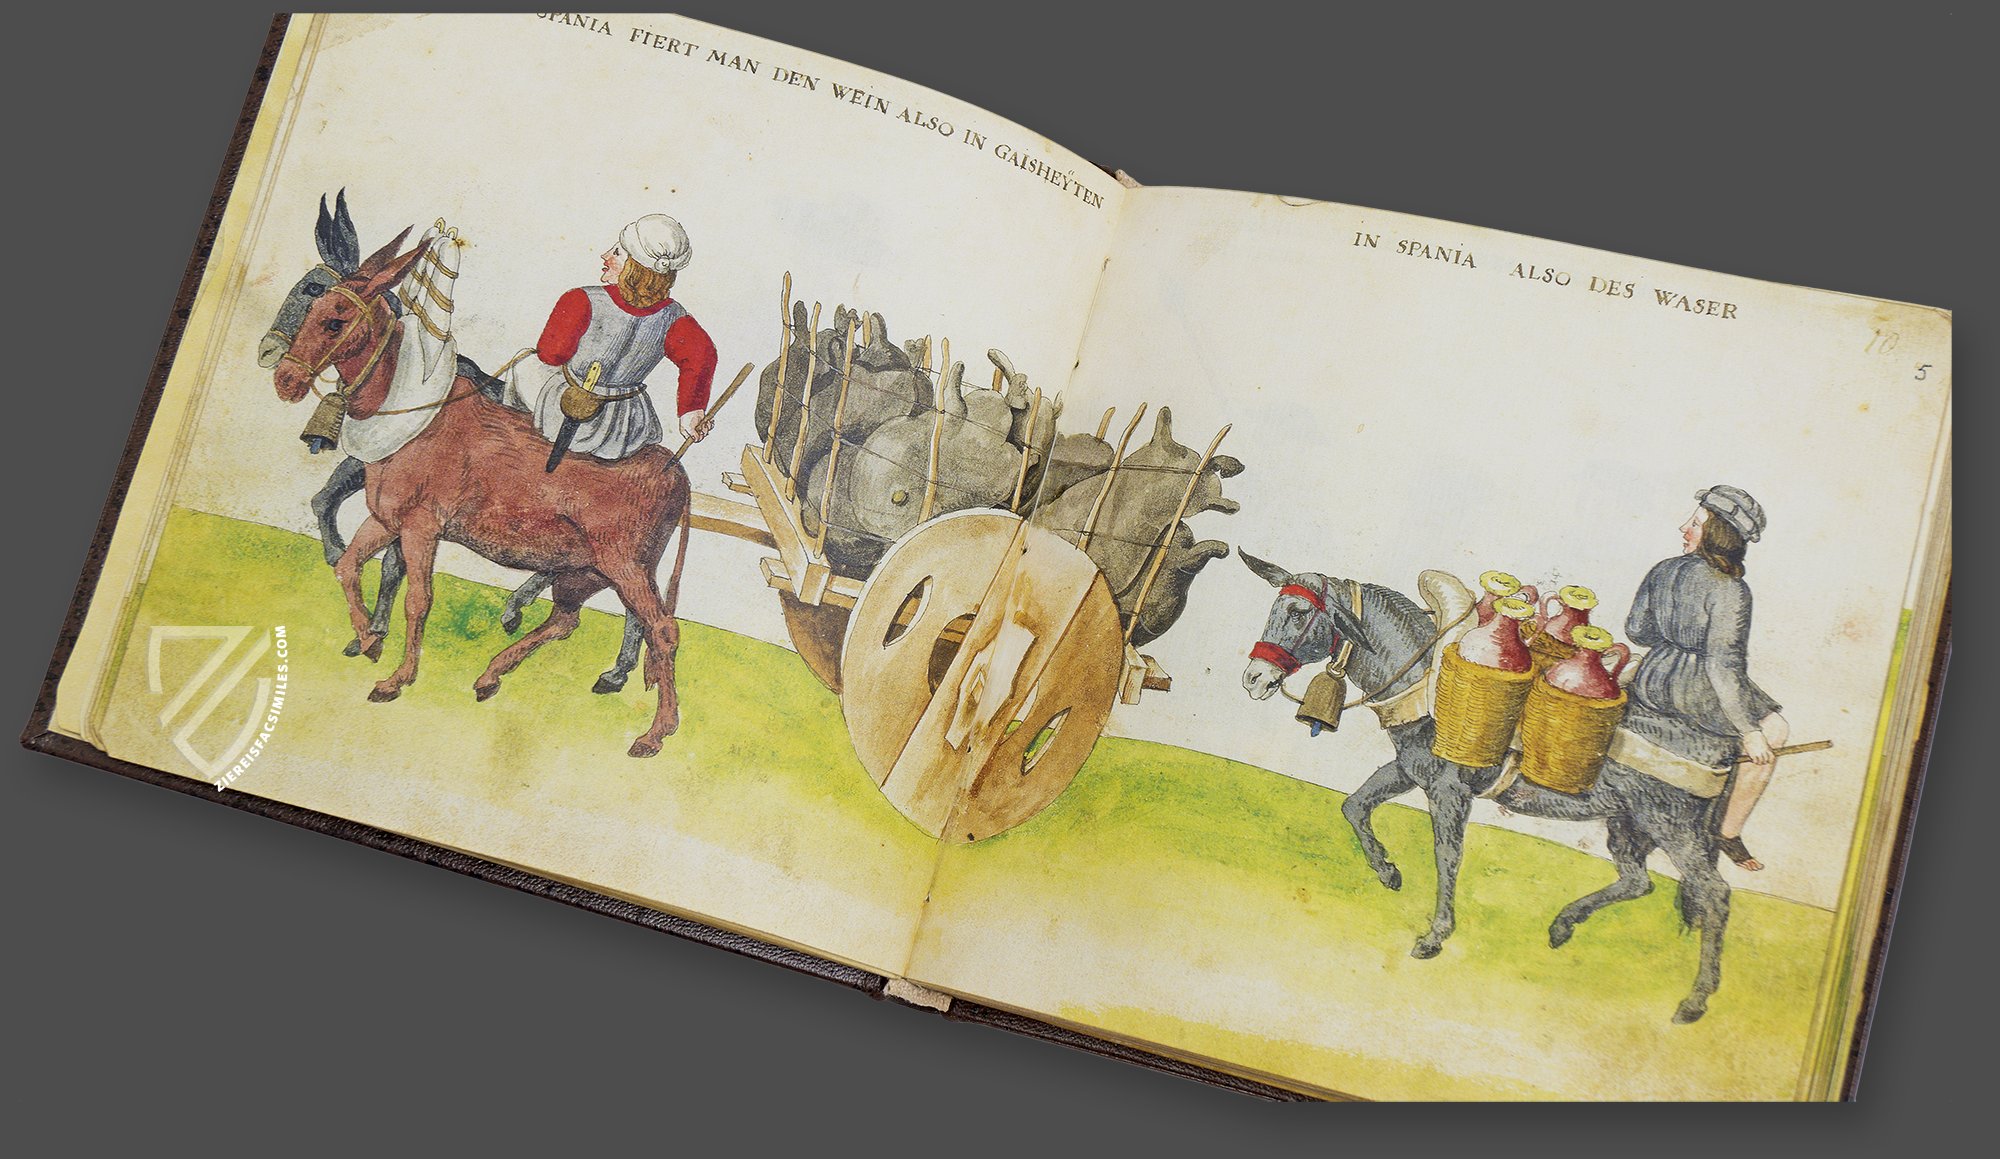 SPANIA FIERT MAN DEN WEIN ALSO IN GAISHEŸTEN
IN SPANIA ALSO DES WASER
10
5
ZIEREISFACSIMILES.COM